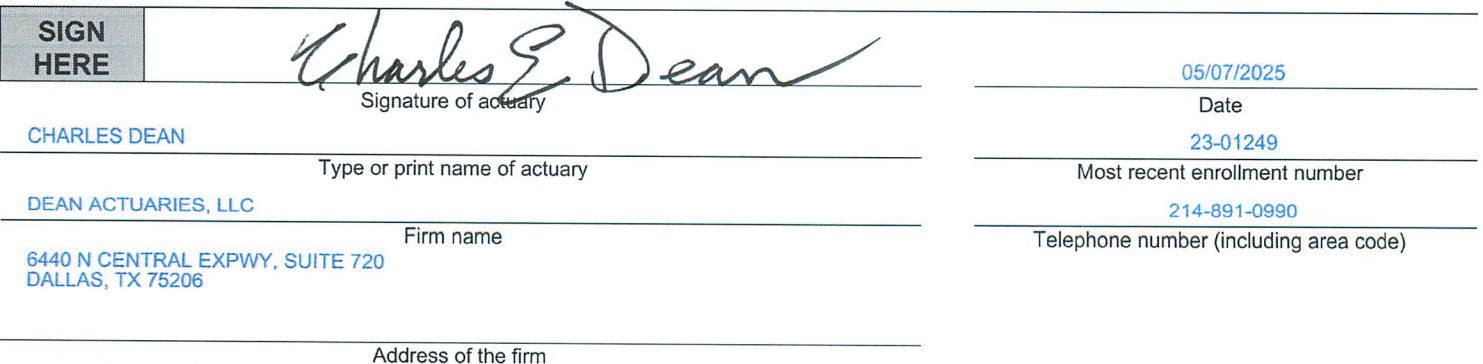 SIGN
HERE
Charles E Dean
05/07/2025
Signature of actuary
Date
CHARLES DEAN
23-01249
Type or print name of actuary
Most recent enrollment number
DEAN ACTUARIES, LLC
214-891-0990
Firm name
Telephone number (including area code)
6440 N CENTRAL EXPWY, SUITE 720
DALLAS, TX 75206
Address of the firm